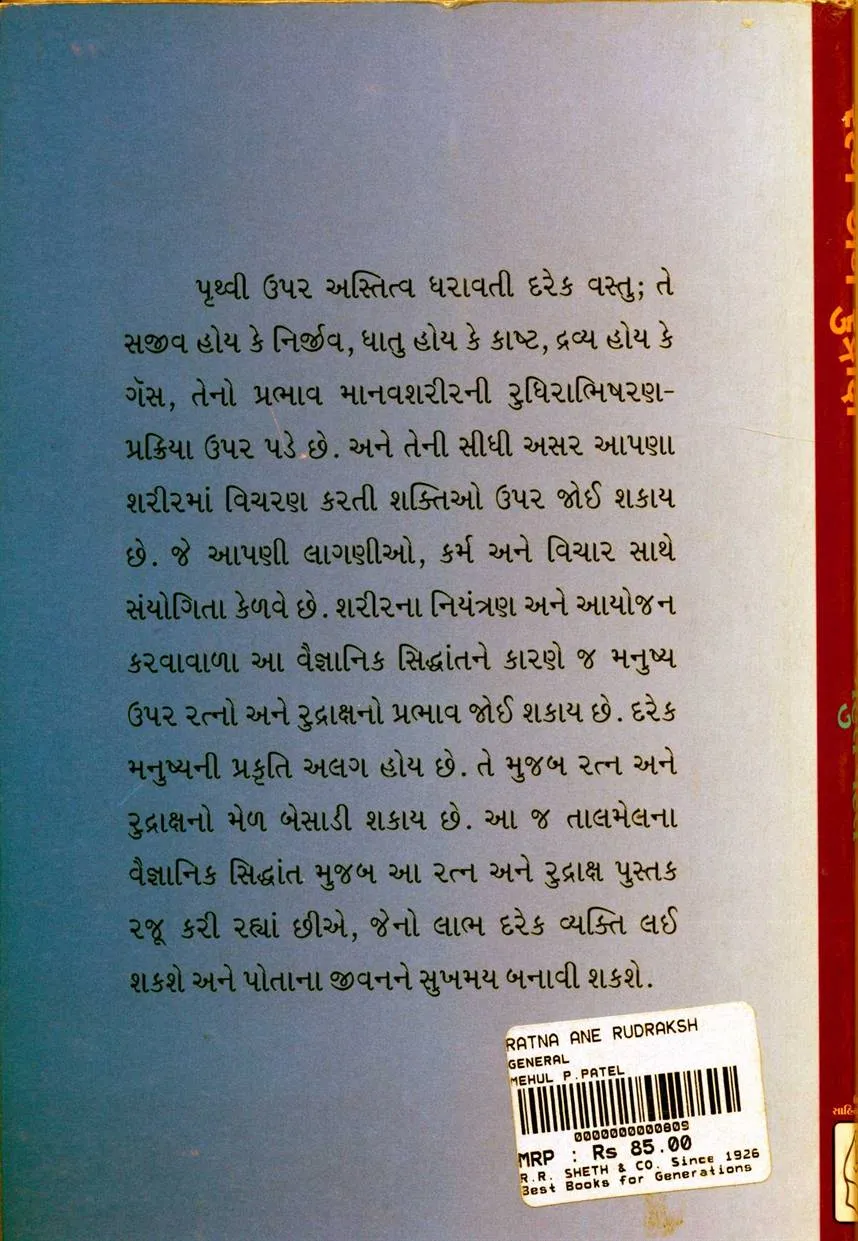 પૃથ્વી ઉપર અસ્તિત્વ ધરાવતી દરેક વસ્તુ; તે
સજીવ હોય કે નિર્જીવ, ધાતુ હોય કે કાષ્ટ, દ્રવ્ય હોય કે
ગૅસ, તેનો પ્રભાવ માનવશરીરની રુધિરાભિષરણ-
પ્રક્રિયા ઉપર પડે છે. અને તેની સીધી અસર આપણા
શરીરમાં વિચરણ કરતી શક્તિઓ ઉપર જોઈ શકાય
છે. જે આપણી લાગણીઓ, કર્મ અને વિચાર સાથે
સંયોગિતા કેળવે છે. શરીરના નિયંત્રણ અને આયોજન
કરવાવાળા આ વૈજ્ઞાનિક સિદ્ધાંતને કારણે જ મનુષ્ય
ઉપર રત્નો અને રુદ્રાક્ષનો પ્રભાવ જોઈ શકાય છે. દરેક
મનુષ્યની પ્રકૃતિ અલગ હોય છે. તે મુજબ રત્ન અને
રુદ્રાક્ષનો મેળ બેસાડી શકાય છે. આ જ તાલમેલના
વૈજ્ઞાનિક સિદ્ધાંત મુજબ આ રત્ન અને રુદ્રાક્ષ પુસ્તક
રજૂ કરી રહ્યાં છીએ, જેનો લાભ દરેક વ્યક્તિ લઈ
શકશે અને પોતાના જીવનને સુખમય બનાવી શકશે.
RATNA ANE RUDRAKSH
GENERAL
MEHUL P.PATEL
0000000000809
MRP : Rs 85.00
R.R. SHETH & CO. Since 1926
Best Books for Generations